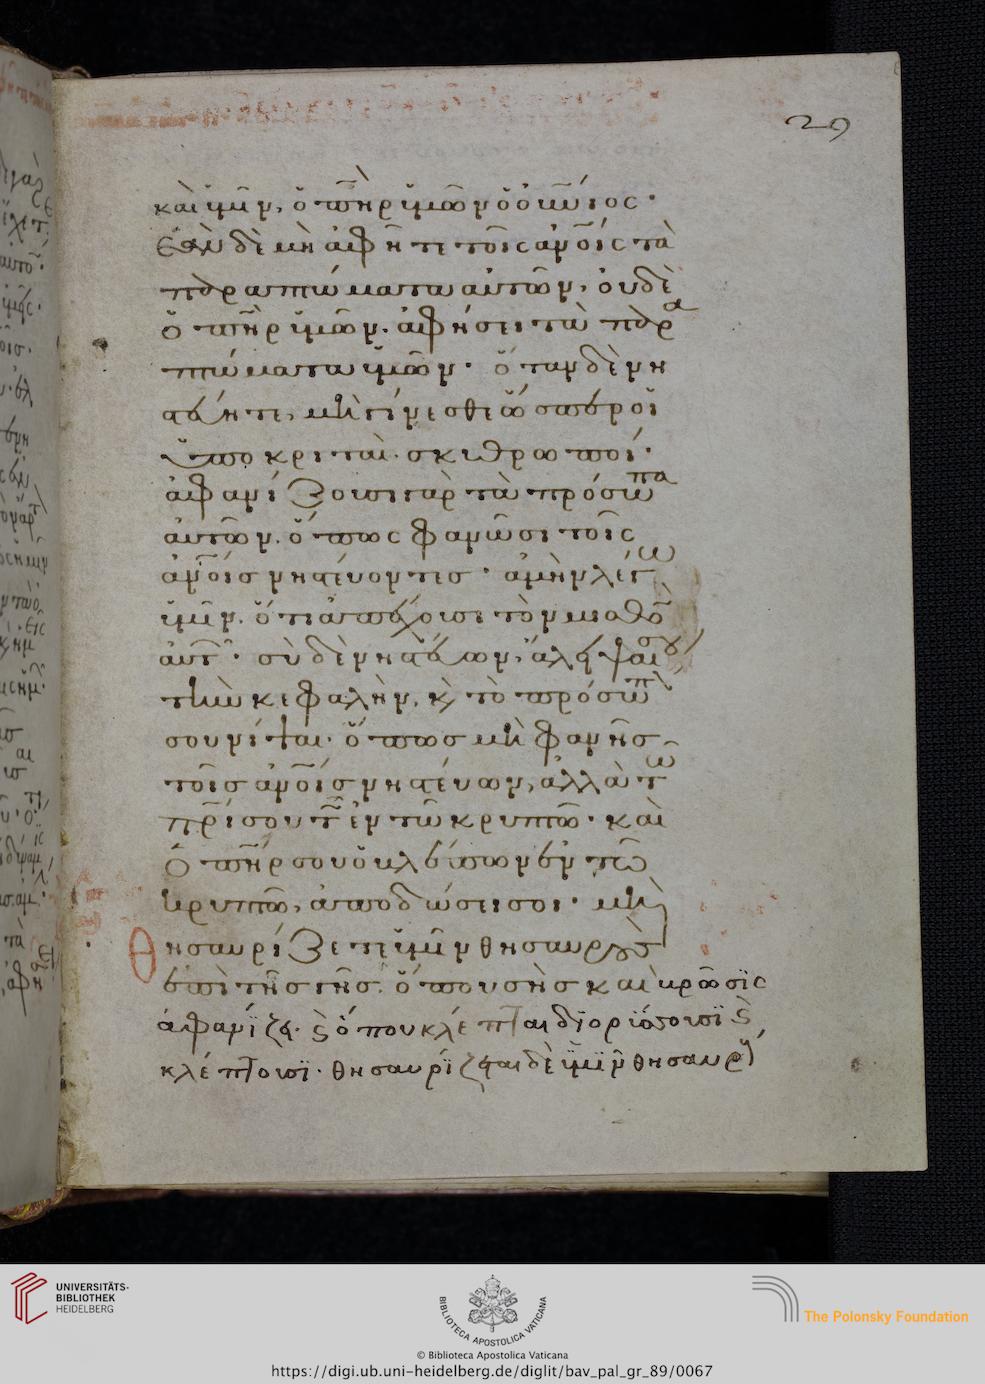 29
καὶ ὑμῖν, ὁ πηρ ὑμῶν ὁ οὐνιος·
ἐὰν δὲ μὴ ἀφῆτε τοῖς ανοις τὰ
παραπτώματα αὐτῶν, οὐδὲ
ὁ πηρ ὑμῶν. ἀφήσει τὰ παρα
πτώματα ὑμῶν· ὅταν δὲ νη
στεύητε, μὴ γίνεσθε ὡσπερ οἱ
ὑποκριταὶ. σκυθρωποί·
ἀφανίζουσι γὰρ τὰ πρόσωπα
αὐτῶν. ὅπως φανῶσι τοῖς
ανοις νηστεύοντες· ἀμὴν λέγω
ὑμῖν. ὅτι ἀπέχουσι τὸν μισθὸ
αὐτ· σὺ δὲ νηστεύων, ἄλειψαι σου
τὴν κεφαλὴν, κ τὸ πρόσωπὸ
σου νίψαι· ὅπως μὴ φανῆς
τοῖς ανοις νηστεύων, ἀλλὰ τῶ
πρι σου τ ἐν τῶ κρυπτῶ· καὶ
ὁ πηρ σου ὁ βλέπων ἐν τῶ
κρυπτῶ, ἀποδώσει σοι· μὴ
θησαυρίζετε ὑμῖν θησαυροὺς
ἐπὶ τῆς γῆς. ὅπου σὴς καὶ βρῶσϊς
ἀφανϊζει. κ ὁπου κλέπται δϊορύσσουσϊ κ
κλέπτουσϊ· θησαυρϊζεται δὲ ὑμϊν θησαυρ
UNIVERSITÄTS-
BIBLIOTHEK
HEIDELBERG
BIBLIOTECA APOSTOLICA VATICANA
© Biblioteca Apostolica Vaticana
The Polonsky Foundation
https://digi.ub.uni-heidelberg.de/diglit/bav_pal_gr_89/0067